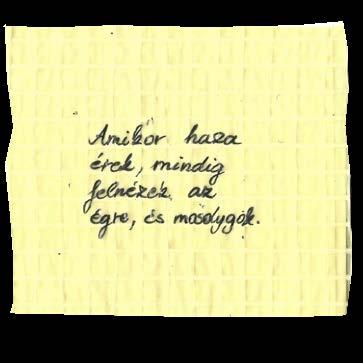 Amikor haza
érek, mindig
felnézek az
égre, és mosolygok.